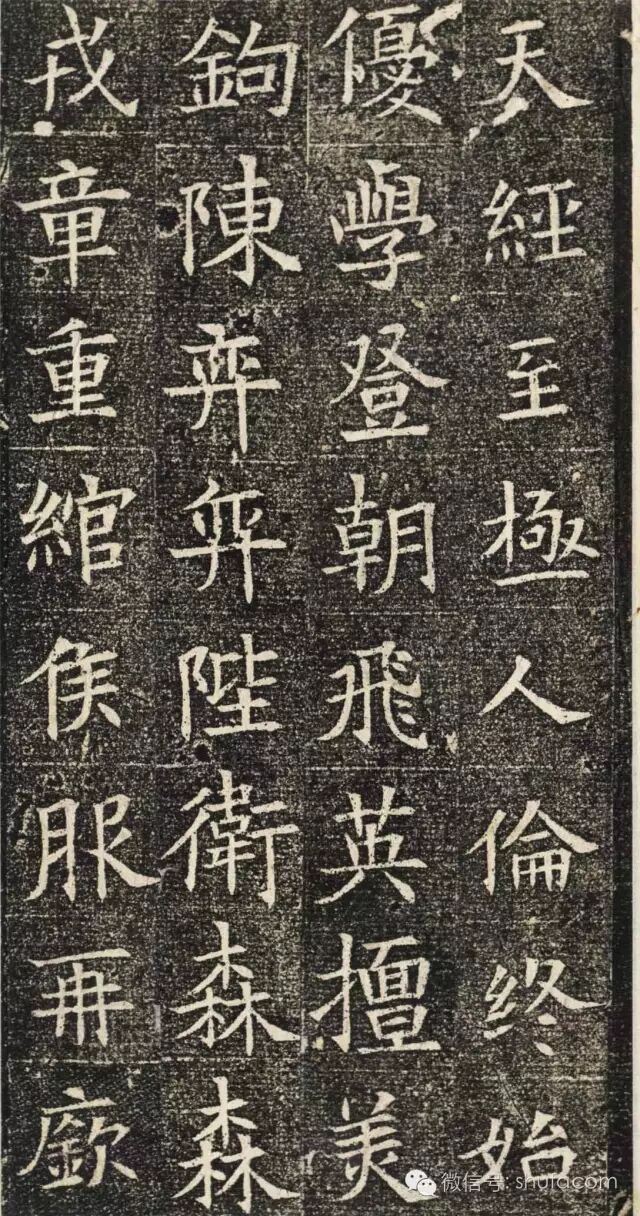 天經至極人倫終始
優學登朝飛英擅美
鉤陳弈弈陛衛森森
戎章重綰侯服再廞
微信号: shufacom